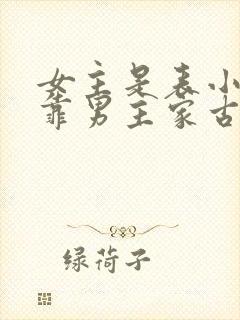 女主是表小
靠男主家古
绿荷子